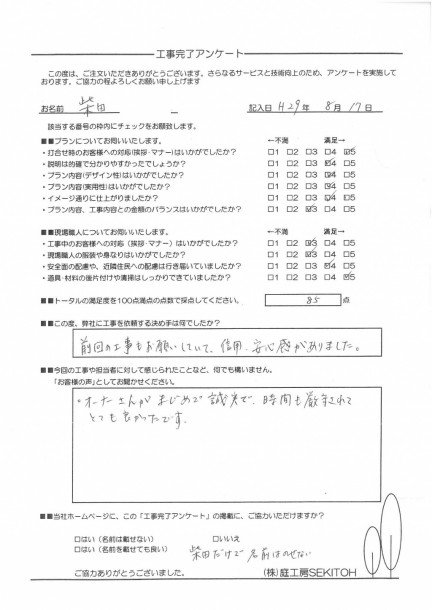 工事完了アンケート
この度は、ご注文いただきありがとうございます。さらなるサービスと技術向上のため、アンケートを実施して
おります。ご協力の程よろしくお願い申し上げます
お名前 柴田 記入日 H29年 8月 17日
該当する番号の枠内にチェックをお願致します。
■■プランについてお伺いいたします。 ←不満 満足→
・打合せ時のお客様への対応(挨拶・マナー)はいかがでしたか？ □1 □2 □3 □4 ☑5
・説明は的確で分かりやすかったでしょうか？ □1 □2 □3 ☑4 □5
・プラン内容(デザイン性)はいかがでしたか？ □1 □2 □3 ☑4 □5
・プラン内容(実用性)はいかがでしたか？ □1 □2 □3 ☑4 □5
・イメージ通りに仕上がりましたか？ □1 □2 □3 ☑4 □5
・プラン内容、工事内容との金額のバランスはいかがでしたか？ □1 □2 ☑3 □4 □5
■■現場職人についてお伺いいたします。 ←不満 満足→
・工事中のお客様への対応（挨拶・マナー）はいかがでしたか？ □1 □2 ☑3 □4 □5
・現場職人の服装や身なりはいかがでしたか？ □1 □2 ☑3 □4 □5
・安全面の配慮や、近隣住民への配慮は行き届いていましたか？ □1 □2 □3 ☑4 □5
・道具・材料の後片付けや清掃はしっかりできていましたか？ □1 □2 □3 □4 ☑5
■■トータルの満足度を100点満点の点数で採点してください。 85 点
■■この度、弊社に工事を依頼する決め手は何でしたか？
前回の工事もお願いしていて、信用、安心感がありました。
■■今回の工事や担当者に対して感じられたことなど、何でも構いません。
「お客様の声」としてお聞かせください。
・オーナーさんがまじめで誠実で、時間も厳守されて
とても良かったです。
■■当社ホームページに、この「工事完了アンケート」の掲載に、ご協力いただけますか？
□はい（名前は載せない） □いいえ
□はい（名前を載せても良い） 柴田だけで名前はのせない
ご協力ありがとうございました。 （株）庭工房SEKITOH